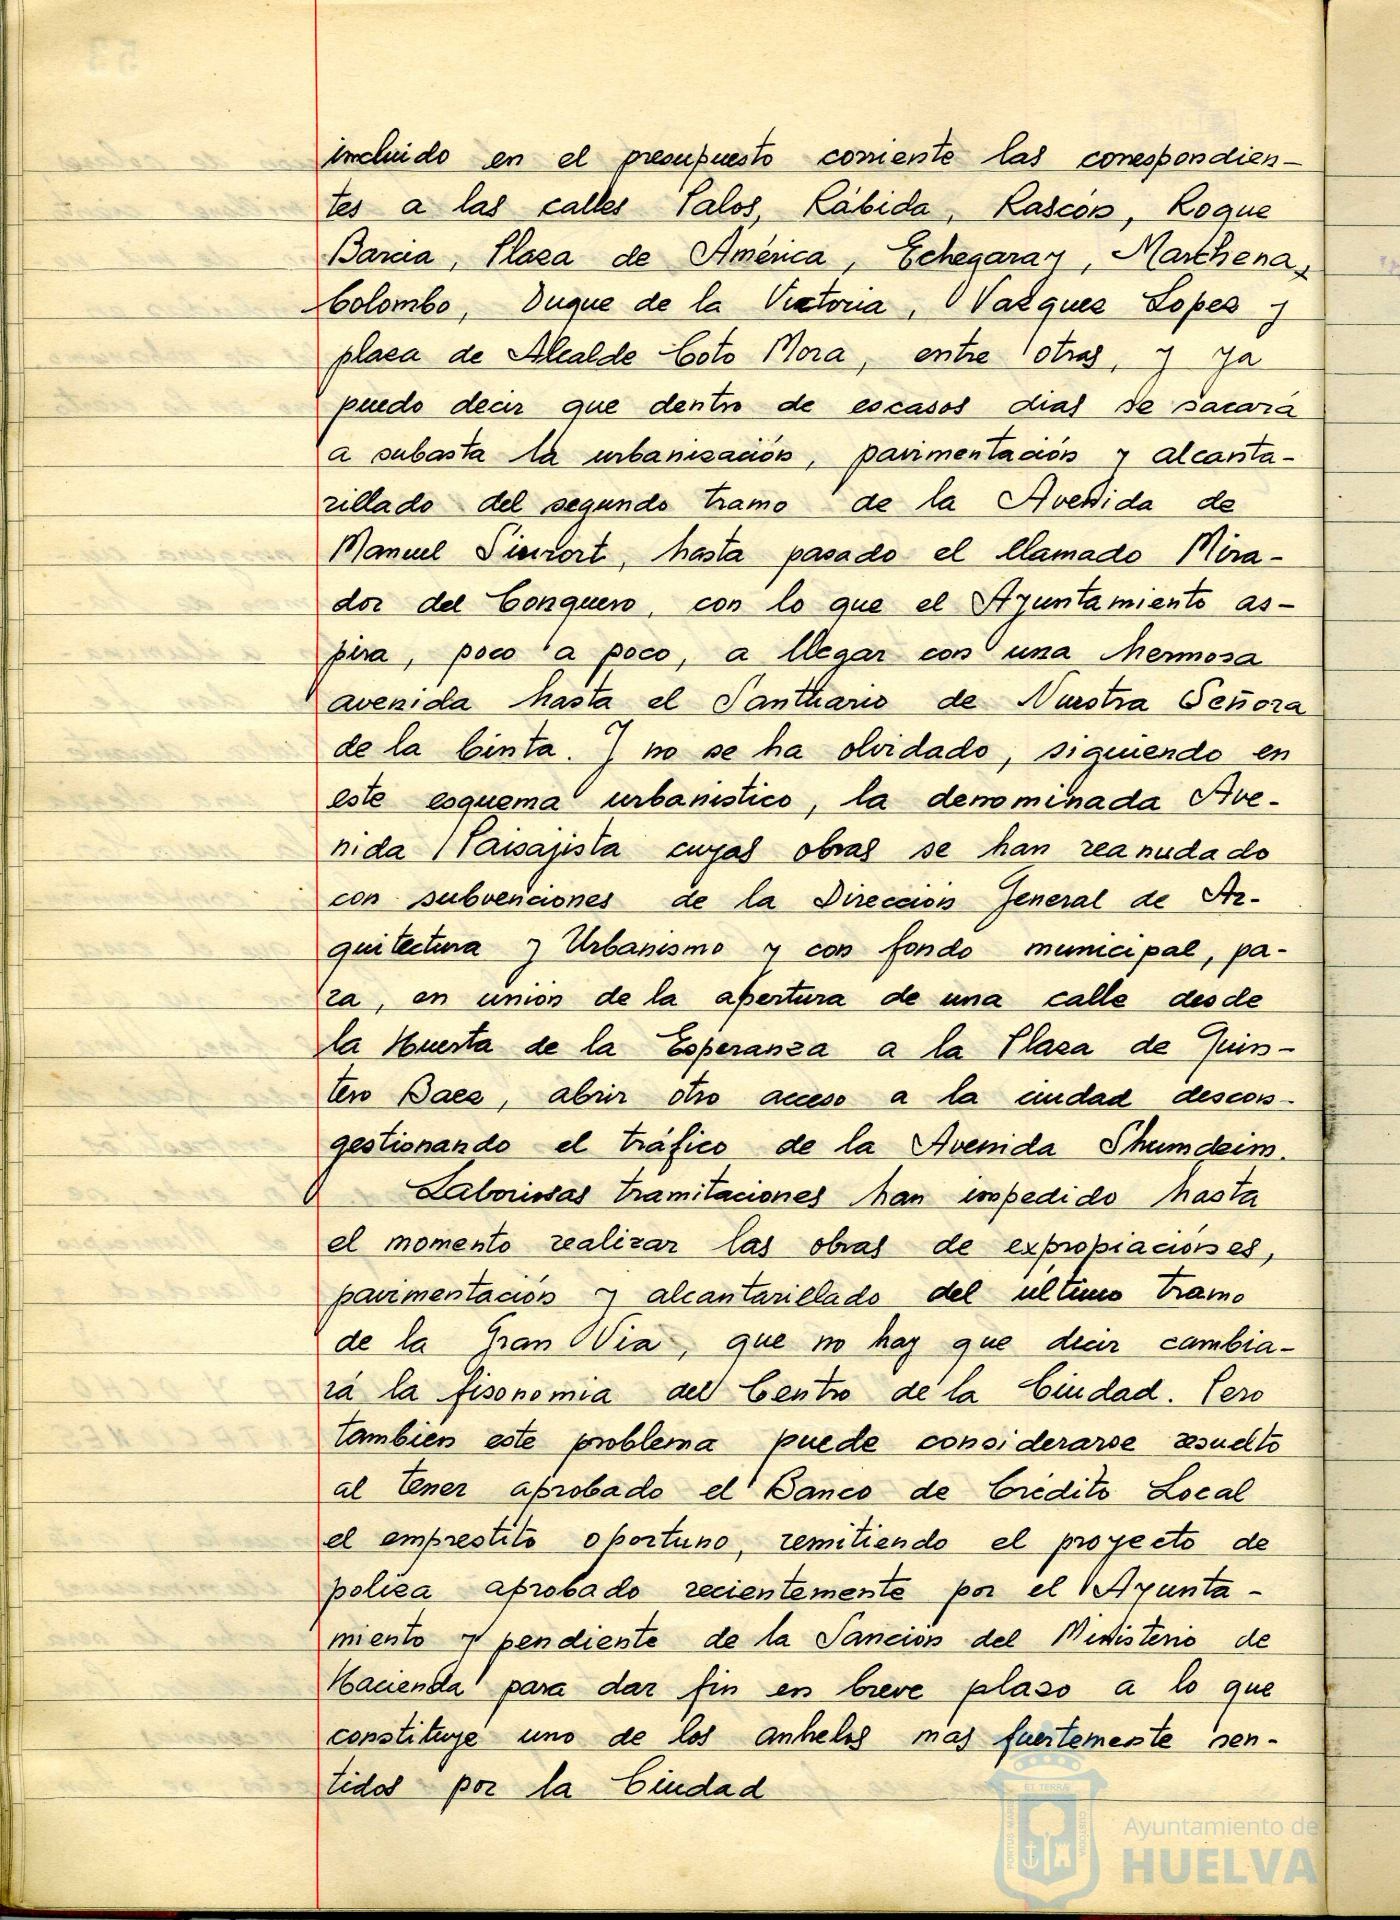 incluido en el presupuesto corriente las correspondien-
tes a las calles Palos, Rábida, Rascón, Roque
Barcia, Plaza de América, Echegaray, Marchena,
Colombo, Duque de la Victoria, Vazquez Lopez y
plaza de Alcalde Coto Mora, entre otras, y ya
puedo decir que dentro de escasos dias se sacará
a subasta la urbanización, pavimentación y alcanta-
rillado del segundo tramo de la Avenida de
Manuel Siurot, hasta pasado el llamado Mira-
dor del Conquero, con lo que el Ayuntamiento as-
pira, poco a poco, a llegar con una hermosa
avenida hasta el Santuario de Nuestra Señora
de la Cinta. Y no se ha olvidado, siguiendo en
este esquema urbanistico, la denominada Ave-
nida Paisajista cuyas obras se han reanudado
con subvenciones de la Dirección General de Ar-
quitectura y Urbanismo y con fondo municipal, pa-
ra, en unión de la apertura de una calle desde
la Huerta de la Esperanza a la Plaza de Quin-
tero Baez, abrir otro acceso a la ciudad descon-
gestionando el tráfico de la Avenida Shumdeim.
Laboriosas tramitaciones han impedido hasta
el momento realizar las obras de expropiaciónes,
pavimentación y alcantarillado del último tramo
de la Gran Via, que no hay que decir cambia-
rá la fisonomia del Centro de la Ciudad. Pero
tambien este problema puede considerarse resuelto
al tener aprobado el Banco de Crédito Local
el emprestito oportuno, remitiendo el proyecto de
poliza aprobado recientemente por el Ayunta-
miento y pendiente de la Sanción del Ministerio de
Hacienda para dar fin en breve plazo a lo que
constituye uno de los anhelos mas fuertemente sen-
tidos por la Ciudad
Ayuntamiento de
HUELVA